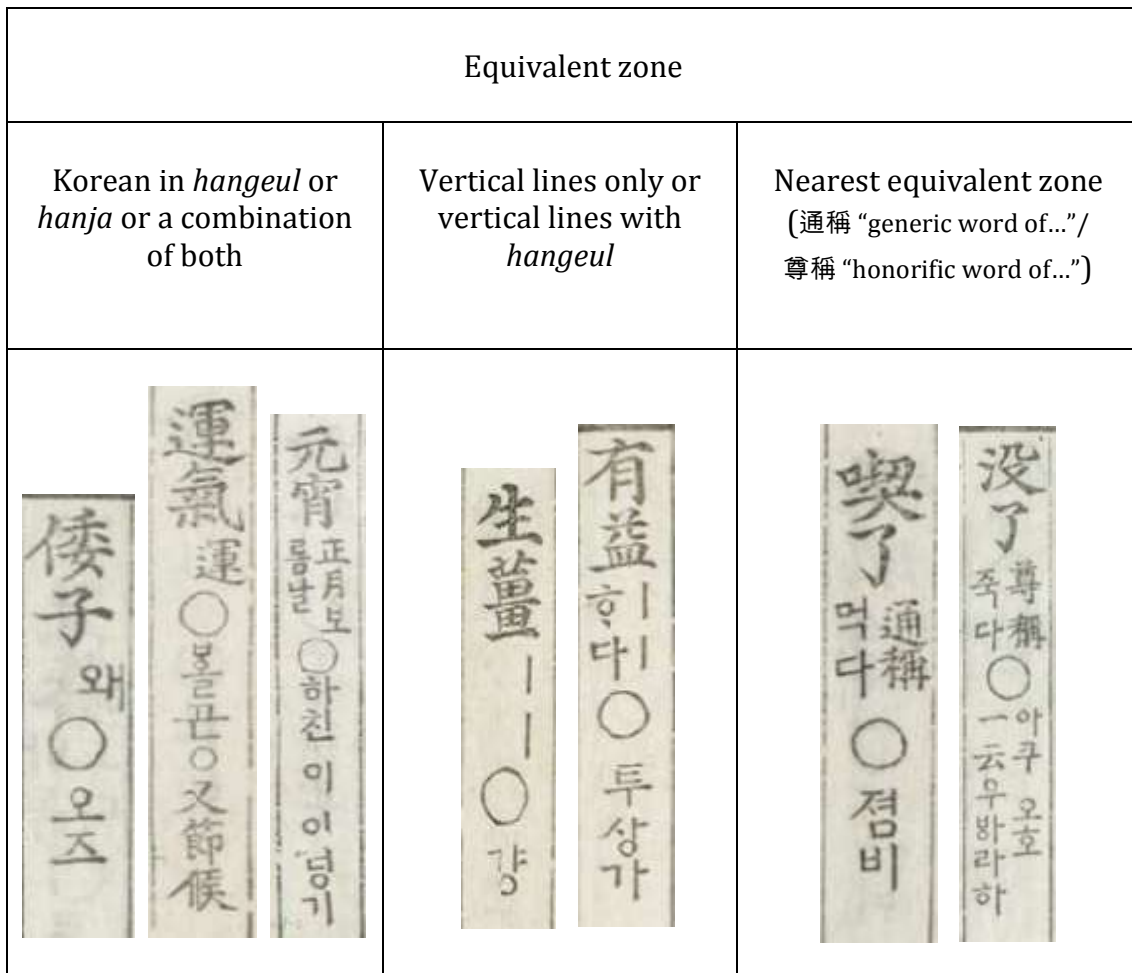 Equivalent zone
Korean in hangeul or
hanja or a combination
of both
Vertical lines only or
vertical lines with
hangeul
Nearest equivalent zone
(通稱 “generic word of…”/
尊稱 “honorific word of…”)
倭子 왜 ○ 오즈
運氣 運 ○ 볼끈 ○ 又節候
元宵 正月보롬날 ○ 하친 이 이넝기
生薑 丨丨 ○ 걍
有益 丨丨ᄒᆞ다 ○ 투상가
喫了 通稱 먹다 ○ 졈비
没了 尊稱 죽다 ○ 아쿠 오호 一云우바라하